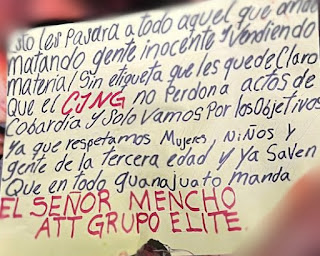 sto les pasara a todo aquel que ande
matando gente inocente y vendiendo
material Sin etiqueta que les quede Claro
Que el CJNG no Perdona actos de
Cobardia y Solo Vamos Por los Objetivos
Ya que respetamos Mujeres, Niños y
gente de la tercera edad y ya Saven
Que en todo guanajuato manda
EL SEÑOR MENCHO
ATT GRUPO ELITE.